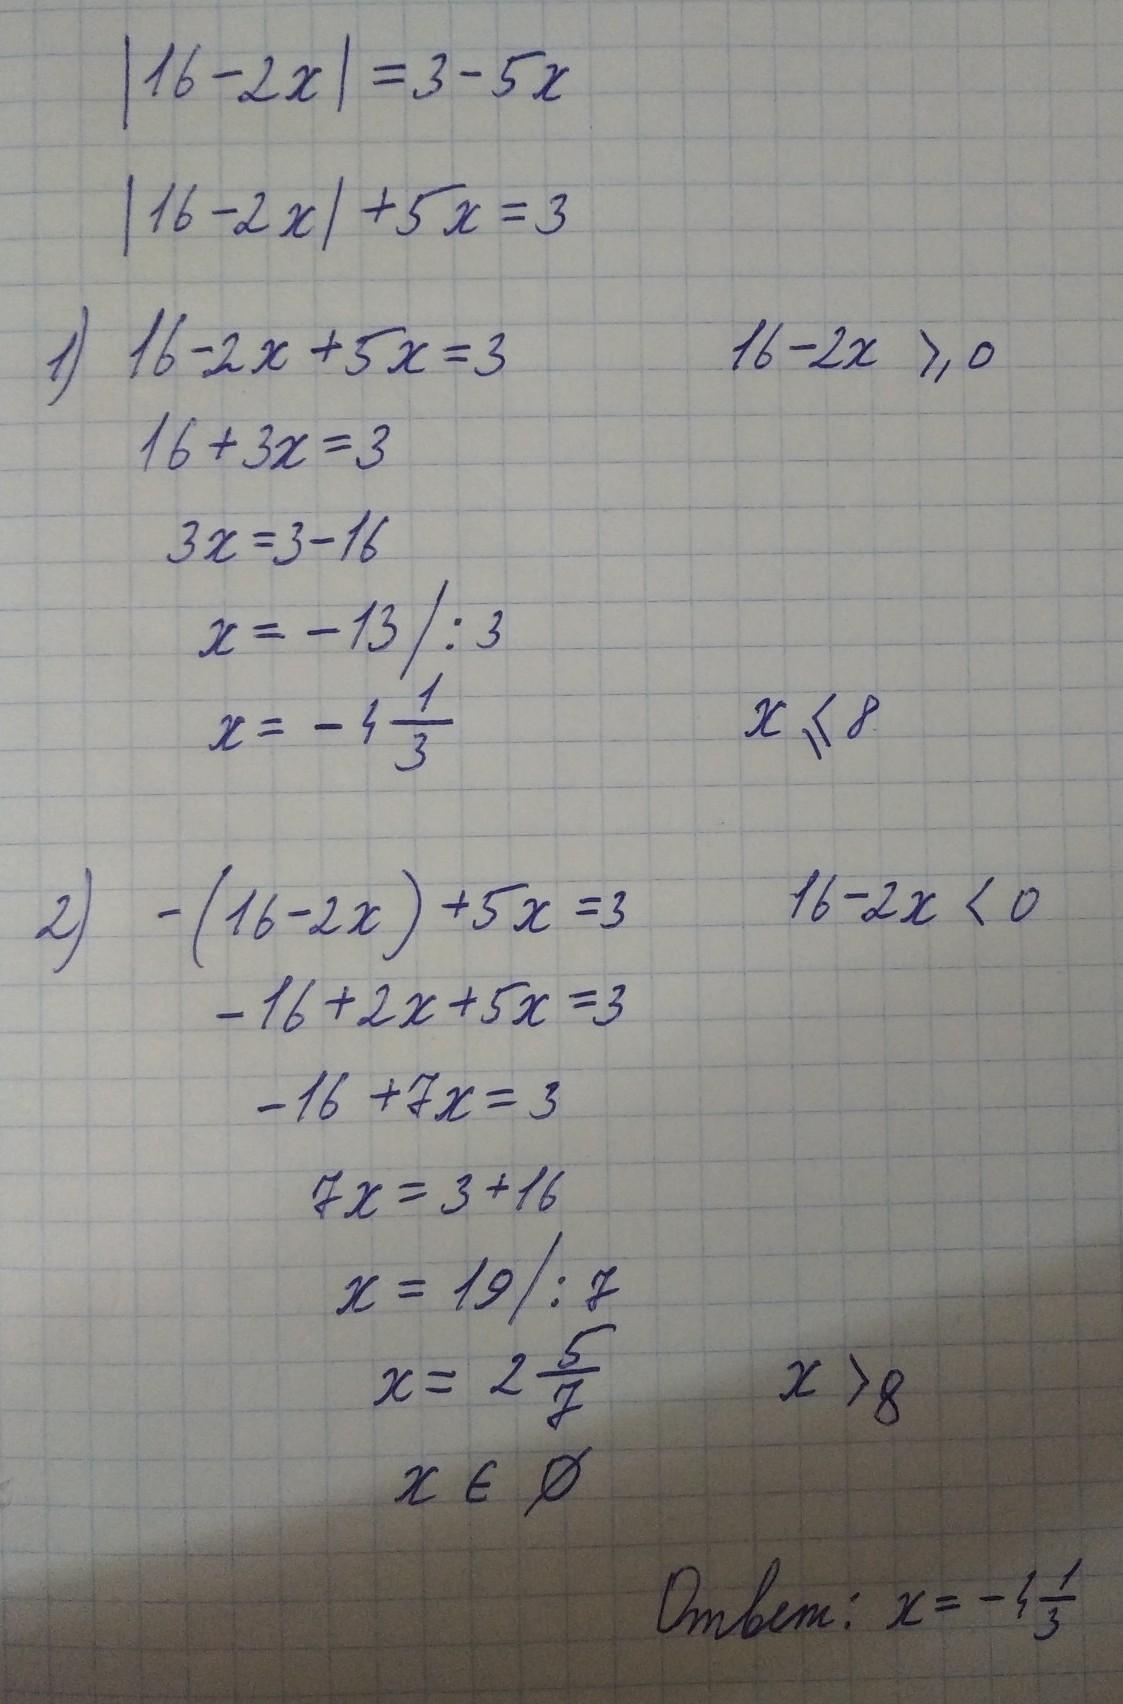 |16-2x| = 3-5x
|16-2x| +5x = 3
1) 16-2x+5x=3 16-2x ⩾ 0
16+3x=3
3x=3-16
x = -13 / : 3
x = -4 1/3 x ⩽ 8
2) -(16-2x)+5x=3 16-2x < 0
-16+2x+5x=3
-16+7x=3
7x=3+16
x = 19 / : 7
x = 2 5/7 x > 8
x ∈ Ø
Ответ: x = -4 1/3